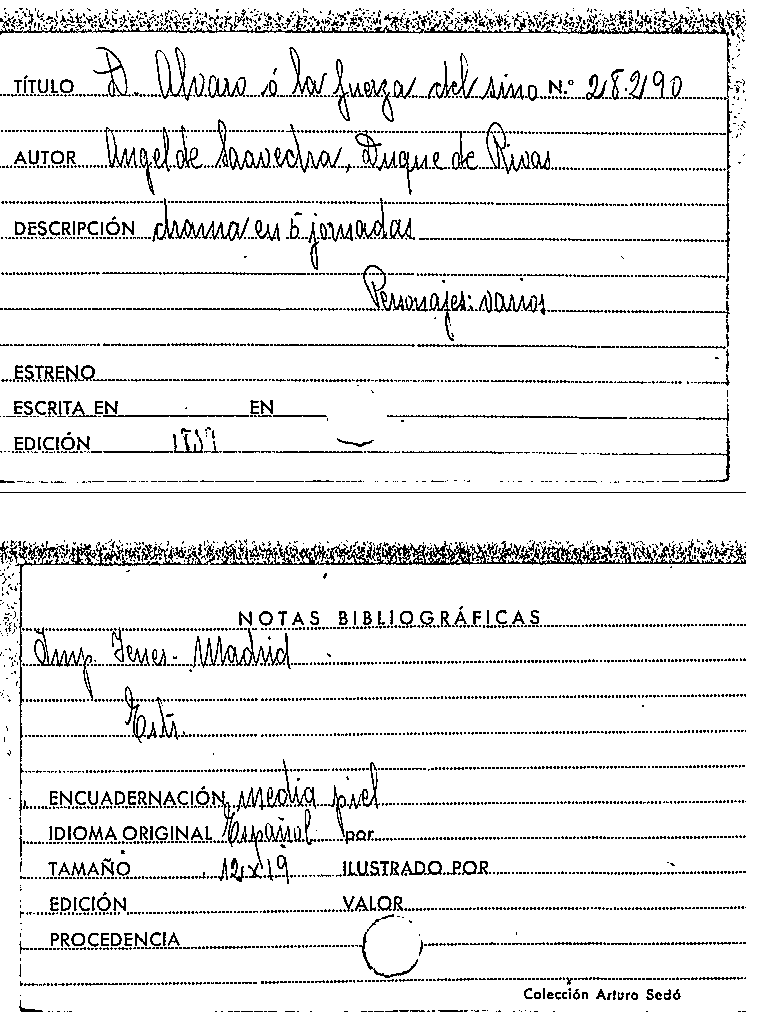 TÍTULO D. Alvaro ó la fuerza del sino N.º 28.290
AUTOR Angel de Saavedra, Duque de Rivas
DESCRIPCIÓN drama en 5 jornadas
Personajes: varios
ESTRENO
ESCRITA EN EN
EDICIÓN
NOTAS BIBLIOGRÁFICAS
Imp. Yenes - Madrid
ENCUADERNACIÓN media piel
IDIOMA ORIGINAL Español por
TAMAÑO 12x19 ILUSTRADO POR
EDICIÓN VALOR
PROCEDENCIA
Colección Arturo Sedó